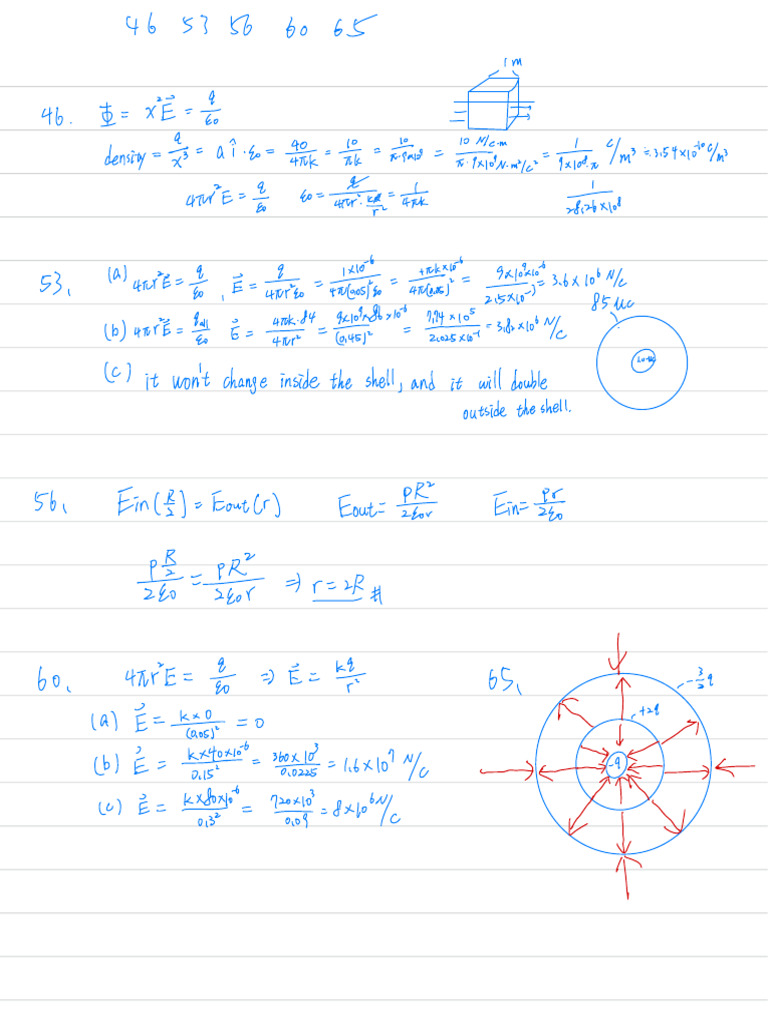 46 53 56 60 65
1 m
46. Φ = x²E⃗ = q/ε₀
density = q/x³ = a î · ε₀ = 40/4πk = 10/πk = 10/π·9×10⁹ = 10 N/c·m / π·9×10⁹ N·m²/c² = 1/9×10⁸·π C/m³ = 3.54×10⁻¹⁰ C/m³
4πr²E = q/ε₀ ε₀ = q/4πr²·kq/r² = 1/4πk 1/28.26×10⁸
53. (a) 4πr²E⃗ = q/ε₀ , E⃗ = q/4πr²ε₀ = 1×10⁻⁶/4π(0.05)²ε₀ = 4πk×10⁻⁶/4π(0.05)² = 9×10⁹×10⁻⁶/2.5×10⁻³ = 3.6×10⁶ N/C
85 μc
(b) 4πr²E⃗ = q_all/ε₀ E⃗ = 4πk·84/4πr² = 9×10⁹×86×10⁻⁶/(0.45)² = 7.74×10⁵/2.025×10⁻¹ = 3.82×10⁶ N/C
(c) it won't change inside the shell, and it will double
outside the shell.
56. Ein(R/2) = Eout(r) Eout = ρR²/2ε₀r Ein = ρr/2ε₀
ρR/2 / 2ε₀ = ρR²/2ε₀r ⇒ r = 2R #
60. 4πr²E = q/ε₀ ⇒ E⃗ = kq/r²
(a) E⃗ = k×0/(0.05)² = 0
(b) E⃗ = k×40×10⁻⁶/0.15² = 360×10³/0.0225 = 1.6×10⁷ N/C
(c) E⃗ = k×80×10⁻⁶/0.3² = 720×10³/0.09 = 8×10⁶ N/C
65.
-3/2q
+2q
-q